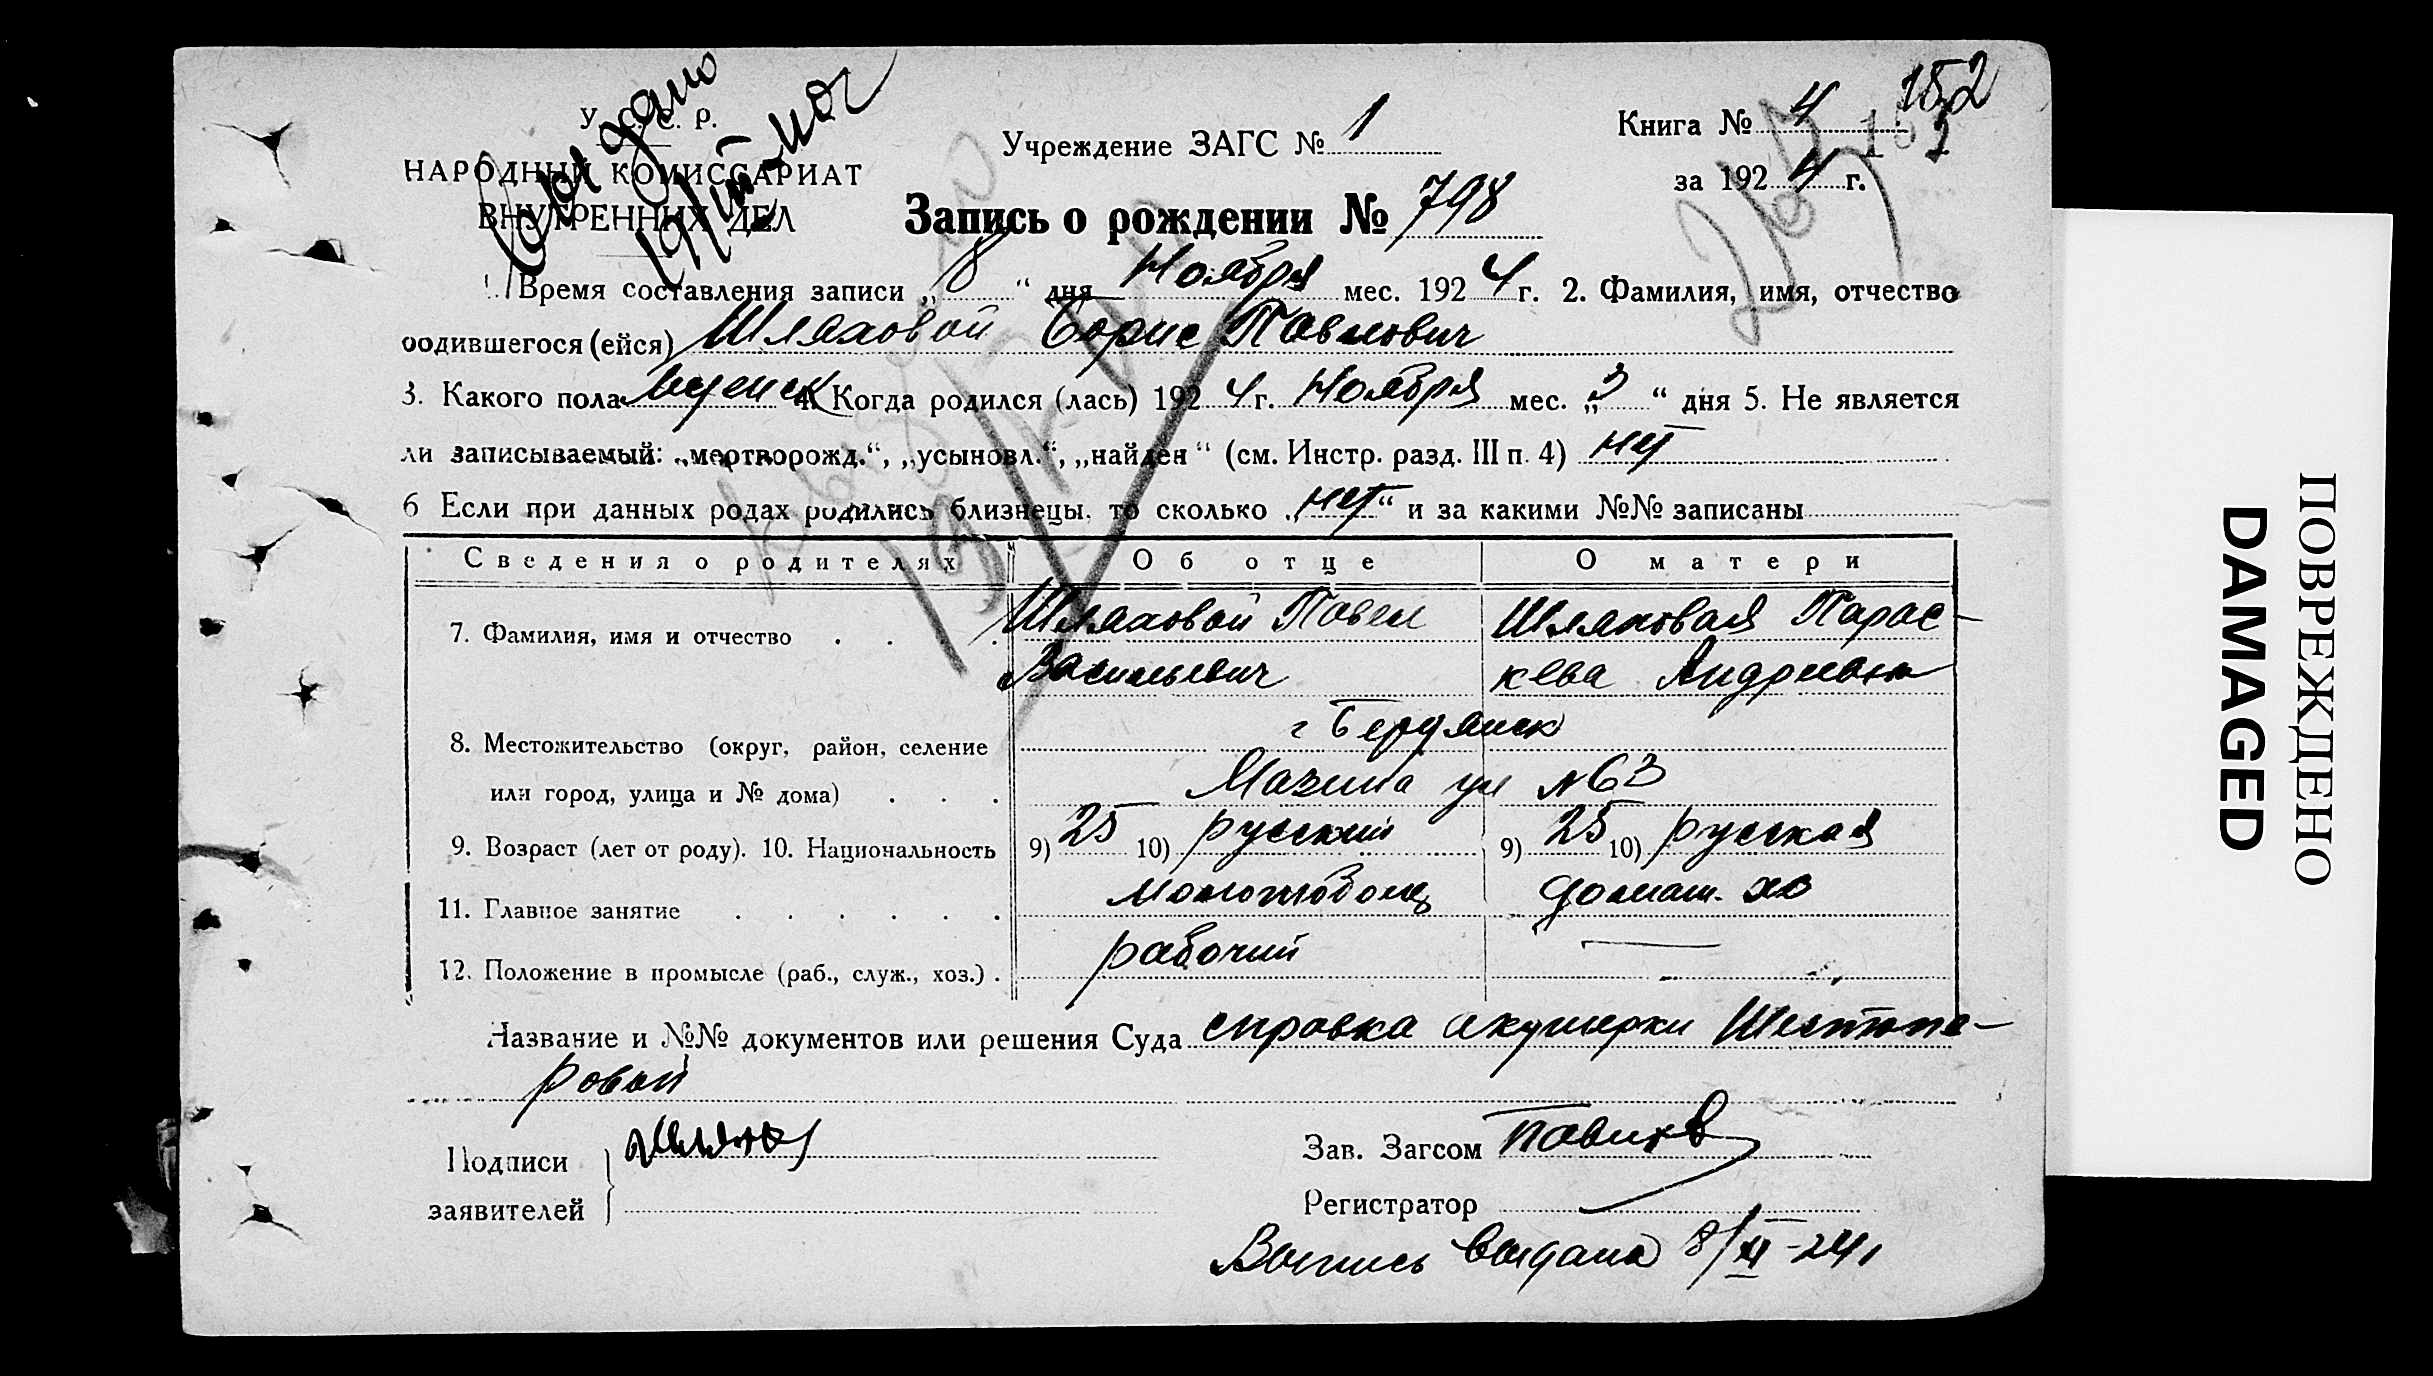 152
У. С. С. Р.
НАРОДНЫЙ КОМИССАРИАТ
ВНУТРЕННИХ ДЕЛ
Выдано
Учреждение ЗАГС № 1
Книга № 4
за 1924 г.
Запись о рождении № 798
1. Время составления записи „8“ дня Ноября мес. 1924 г. 2. Фамилия, имя, отчество
родившегося (ейся) Шляховой Борис Павлович
3. Какого пола мужск 4. Когда родился (лась) 1924 г. Ноября мес. „3“ дня 5. Не является
ли записываемый: „мертворожд.“, „усыновл.“, „найден“ (см. Инстр. разд. III п. 4) нет
6 Если при данных родах родились близнецы, то сколько „нет“ и за какими №№ записаны
Сведения о родителях Об отце О матери
7. Фамилия, имя и отчество Шляховой Павел Шляховая Парас-
Васильевич кева Андреевна
8. Местожительство (округ, район, селение г Бердянск
или город, улица и № дома) Мазина ул № 63
9. Возраст (лет от роду). 10. Национальность 9) 25 10) русский 9) 25 10) русская
11. Главное занятие молотобоец домаш. хо
12. Положение в промысле (раб., служ., хоз.) рабочий —
Название и №№ документов или решения Суда справка акушерки Шестопе-
ровой
Подписи
заявителей
Зав. Загсом
Регистратор
Выпись выдана 8/XI-24 г
ПОВРЕЖДЕНО
DAMAGED